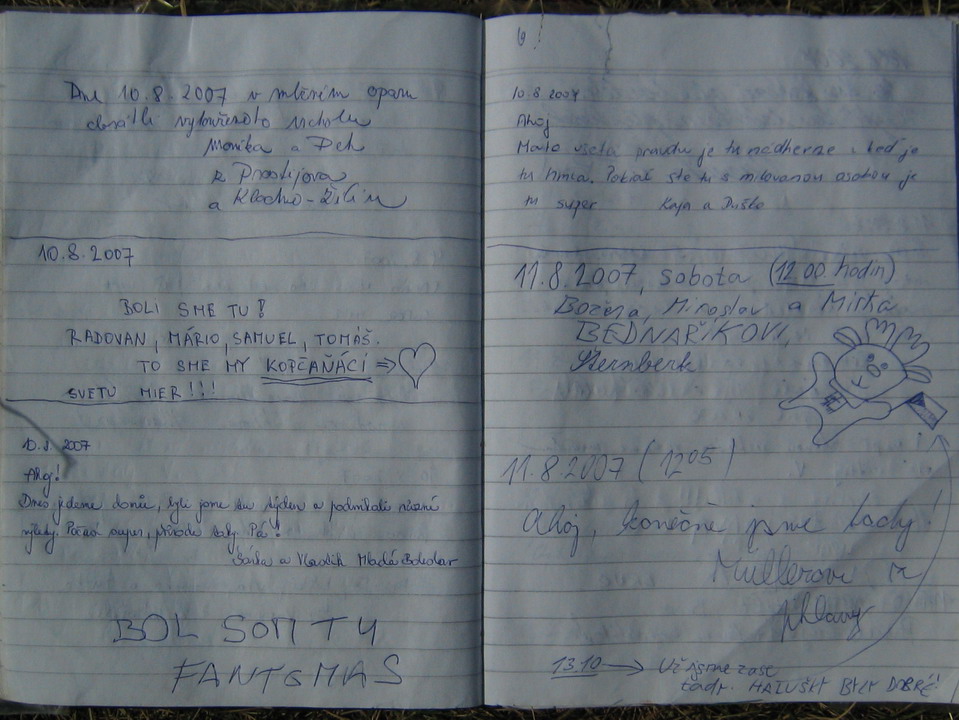 Dne 10.8.2007 v mléčném oparu
dosáhli vytouženého vrcholu
Monika a Petr
z Prostějova
a Kladno - Žilin
10.8.2007
BOLI SME TU!
RADOVAN, MÁRIO, SAMUEL, TOMÁŠ.
TO SME MY KOPČAŇÁCI ⇒ ♡
SVETU MIER!!!
10.8.2007
Ahoj!
Dnes jedeme domů, byli jsme tu týden a podnikali různé
výlety. Počasí super, příroda taky. Pá!
Šárka a Vlastík Mladá Boleslav
BOL SOM TU
FANTOMAS
10.8.2007
Ahoj
Mato vseta pravdu je tu nádherne i keď je
tu hmla. Pokiaľ ste tu s milovanou osobou je
tu super Kaja a Duško
11.8.2007, sobota (12 00 hodin)
Božena, Miroslav a Mirka
BEDNAŘÍKOVI,
Šternberk
11.8.2007 (12 05)
Ahoj, konečně jsme tady!
Müllerovi z
Jihlavy
13.10 → Už jsme zase
tady. HALUŠKY BYLY DOBRÉ!